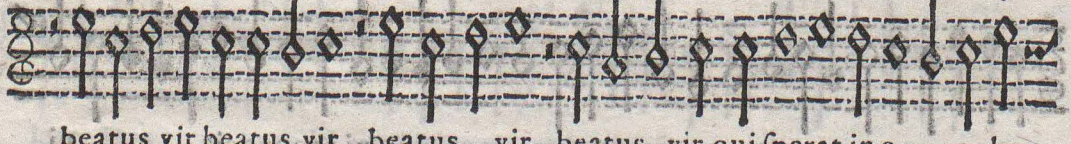 beatus vir beatus vir beatus vir beatus vir qui ſperat in